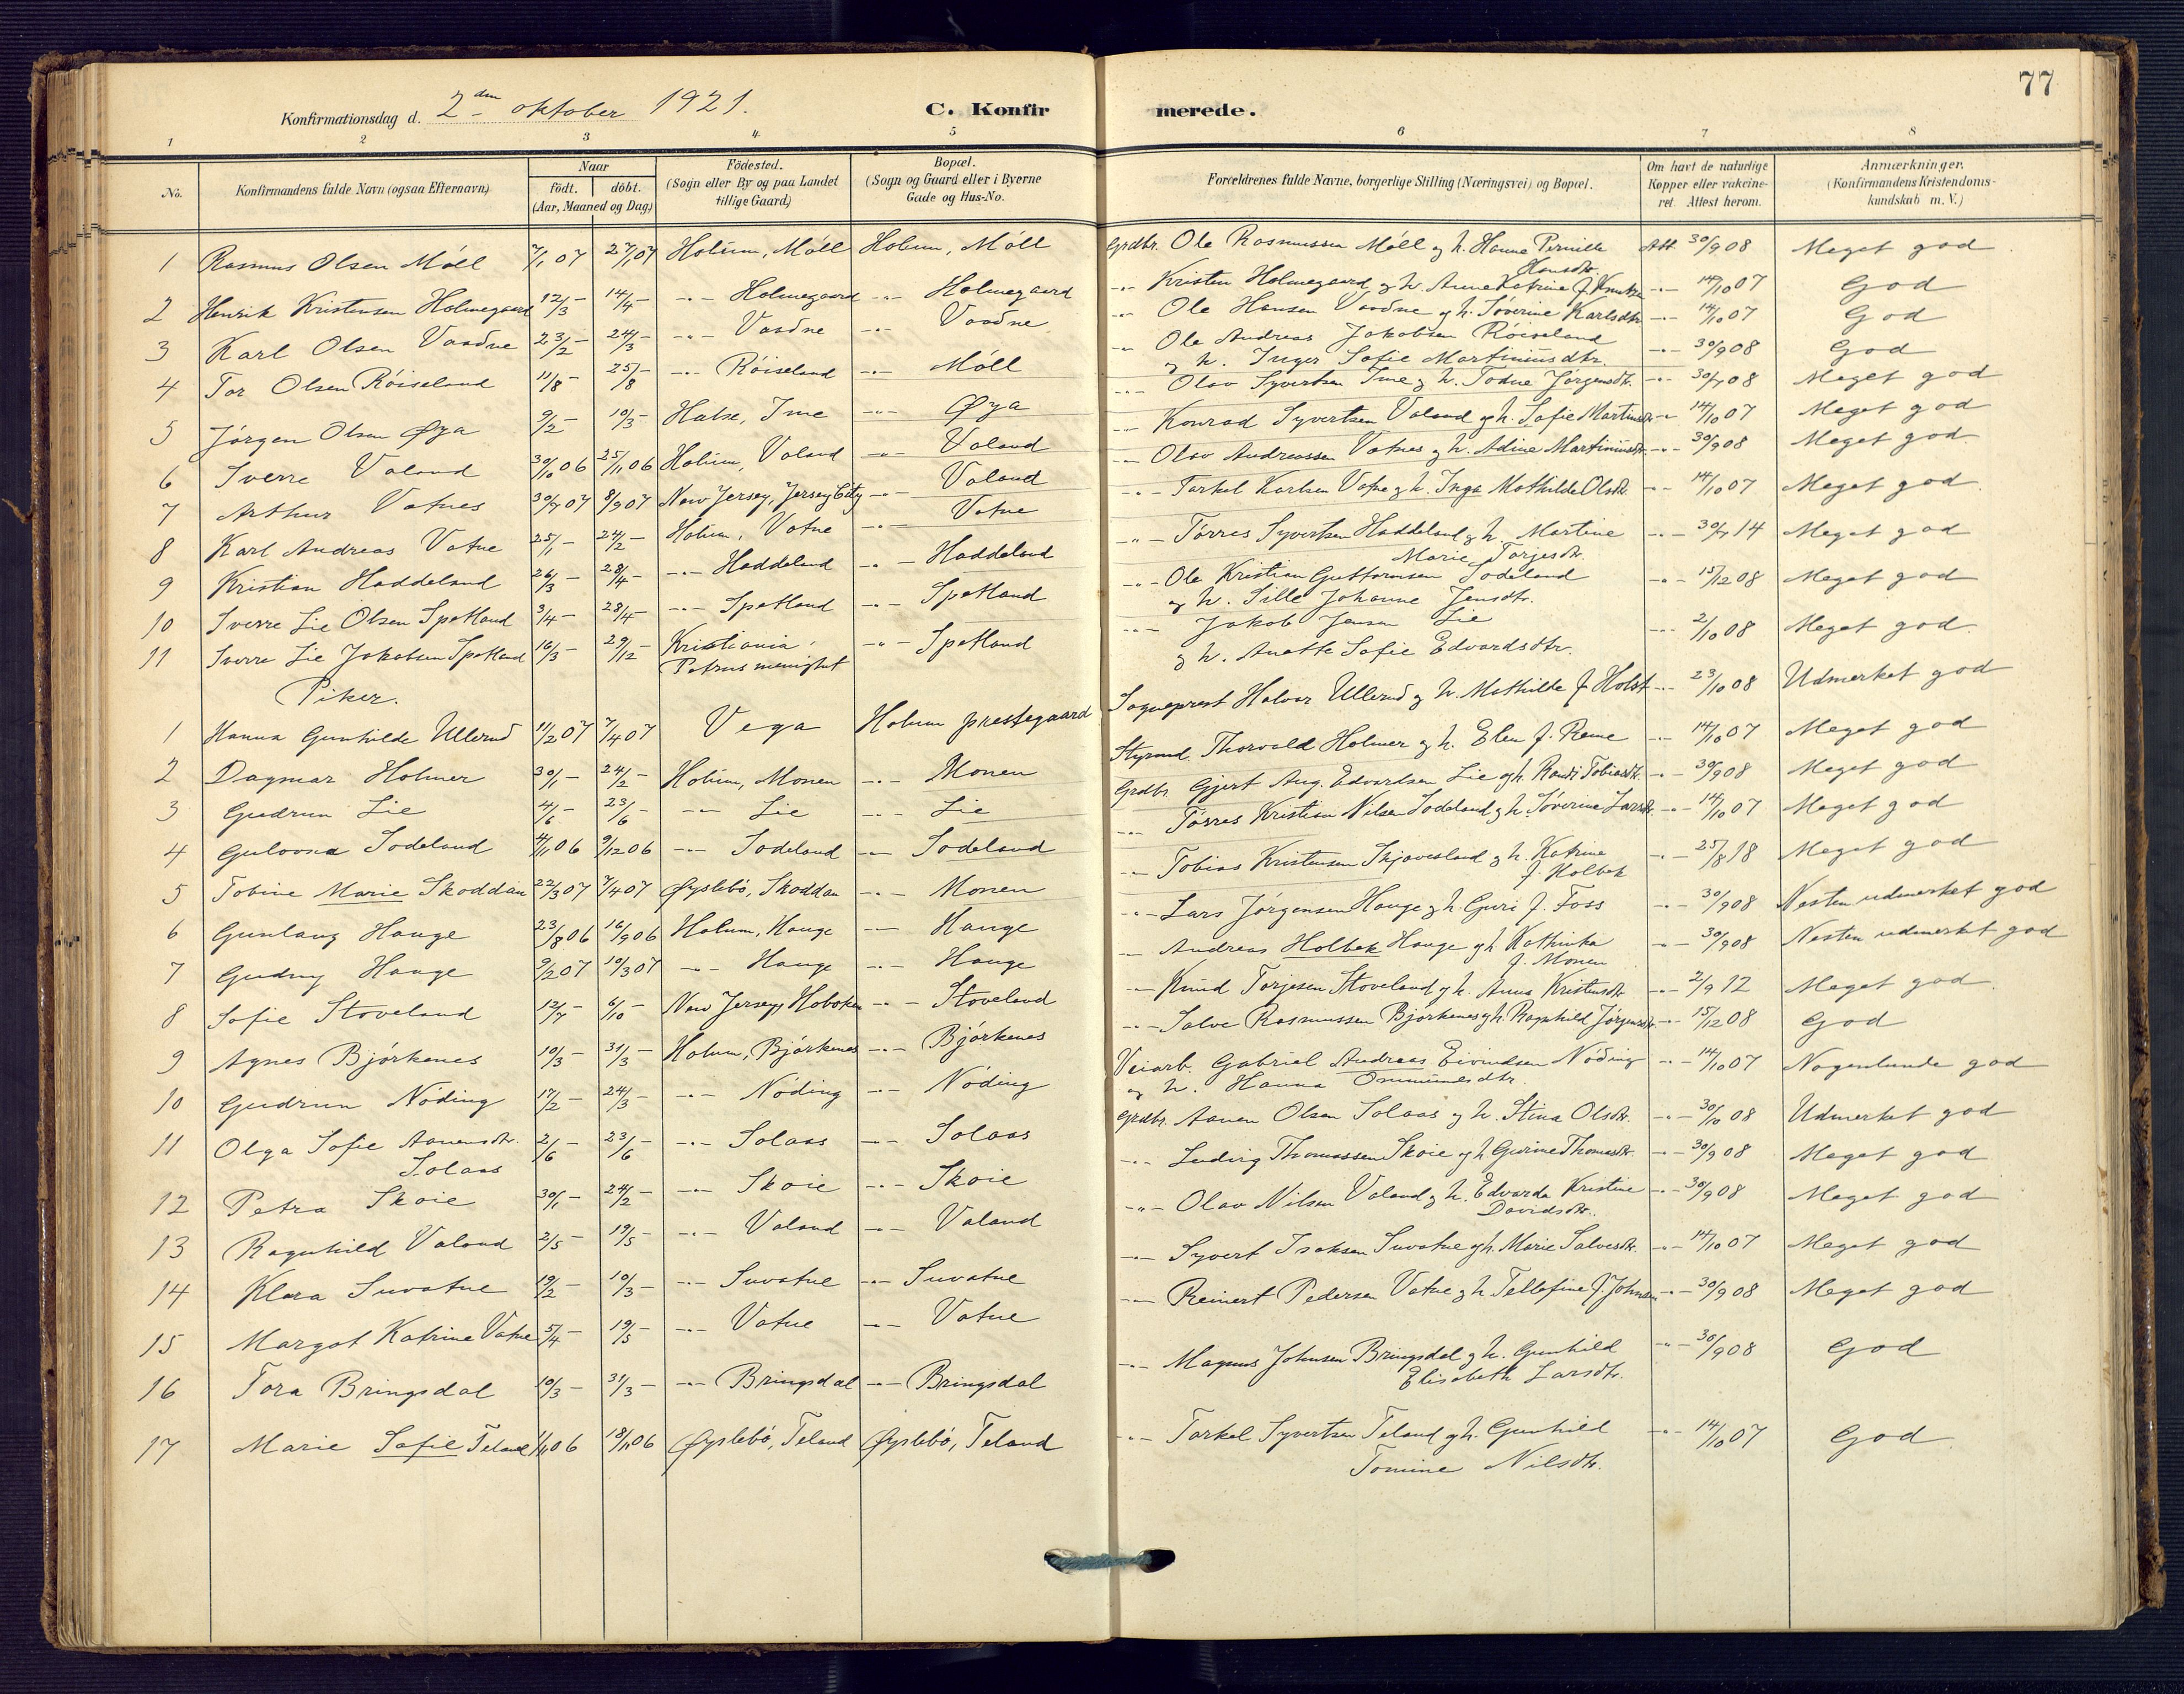 77
Konfirmationsdag d. 2den oktober 1921.
C. Konfirmerede.
1 2 3 4 5 6 7 8
No.
Konfirmandens fulde Navn (ogsaa Efternavn)
Naar
födt. döbt.
(Aar, Maaned og Dag)
Födested.
(Sogn eller By og paa Landet
tillige Gaard)
Bopæl.
(Sogn og Gaard eller i Byerne
Gade og Hus-No.
Forældrenes fulde Navne, borgerlige Stilling (Næringsvei) og Bopæl.
Om havt de naturlige
Kopper eller vakcine-
ret. Attest herom.
Anmærkninger.
(Konfirmandens Kristendoms-
kundskab m. V.)
1 Rasmus Olsen Möll 7/1 07 27/1 07 Holum, Möll Holum, Möll Grdbr. Ole Rasmussen Möll og h. Hanne Pernille Hansdtr. Att. 30/9 08 Meget god
2 Henrik Kristensen Holmegaard 12/3 - 14/4 - -"- Holmegaard -"- Holmegaard -"- Kristen Holmegaard og h. Anne Katrine f. Knutsen -"- 14/10 07 God
3 Karl Olsen Vaadne 23/2 - 24/3 - -"- Vaadne -"- Vaadne -"- Ole Hansen Vaadne og h. Söverine Karlsdtr. -"- 14/10 07 God
4 Tor Olsen Röiseland 11/8 - 25/8 - -"- Röiseland -"- Möll -"- Ole Andreas Jakobsen Röiseland
og h. Inger Sofie Martiniusdtr. -"- 30/9 08 God
5 Jörgen Olsen Øya 9/2 - 10/3 - Halse, Ime -"- Øya -"- Olav Syvertsen Ime og h. Todne Jørgensdtr. -"- 30/9 08 Meget god
6 Sverre Valand 30/10 06 25/11 06 Holum, Valand -"- Valand -"- Konrad Syvertsen Valand og h. Sofie Martinsdtr. -"- 14/10 07 Meget god
7 Arthur Vatnes 30/7 07 8/9 07 New Jersey, Jersey City -"- Valand -"- Olav Andreassen Vatnes og h. Adine Martiniusdtr. -"- 30/9 08 Meget god.
8 Karl Andreas Vatne 25/1 - 24/2 - Holum, Vatne -"- Vatne -"- Tarkel Karlsen Vatne og h. Inga Mathilde Olsdtr. -"- 14/10 07 Meget god.
9 Kristian Haddeland 26/3 - 28/4 - -"- Haddeland -"- Haddeland -"- Törres Syvertsen Haddeland og h. Martine
Marie Tarjesdtr. -"- 30/7 14 Meget god
10 Sverre Lie Olsen Spetland 3/4 - 28/4 - -"- Spetland -"- Spetland -"- Ole Kristian Guttormsen Sodeland
og h. Sille Johanne Jensdtr. -"- 15/12 08 Meget god
11 Sverre Lie Jakobsen Spetland 16/3 - 29/12 - Kristiania,
Petrus menighet -"- Spetland -"- Jakob Jensen Lie
og h. Anette Sofie Edvardsdtr. -"- 2/10 08 Meget god.
Piker.
1 Hanna Gunhilde Ullerud 11/2 07 7/4 07 Vega Holum prestegaard Sogneprest Halvor Ullerud og h. Mathilde f. Holst -"- 23/10 08 Udmerket god
2 Dagmar Holmer 30/1 - 24/2 - Holum, Monen -"- Monen Styrmd. Thorvald Holmer og h. Elen f. Reme -"- 14/10 07 Meget god
3 Gudrun Lie 4/6 - 23/6 - -"- Lie -"- Lie Grdbr. Gjert Aug. Edvardsen Lie og h. Randi Tobiasdtr. -"- 30/9 08 Meget god
4 Gulovna Sodeland 4/11 06 9/12 06 -"- Sodeland -"- Sodeland -"- Törres Kristian Nilsen Sodeland og h. Söverine Larsdtr. -"- 14/10 07 Meget god
5 Tobine Marie Skoddan 22/3 07 7/4 07 Øyslebö, Skoddan -"- Monen -"- Tobias Kristensen Skjævesland og h. Katrine
f. Holbek -"- 25/8 18 Meget god
6 Gunlaug Hauge 23/8 06 16/9 06 Holum, Hauge -"- Hauge -"- Lars Jörgensen Hauge og h. Guri f. Foss -"- 30/9 08 Nesten udmerket god
7 Gudny Hauge 9/2 07 10/3 07 -"- Hauge -"- Hauge -"- Andreas Holbek Hauge og h. Kathinka
f. Monen -"- 30/9 08 Nesten udmerket god
8 Sofie Stoveland 12/7 - 6/10 - New Jersey, Hoboken -"- Stoveland -"- Knud Torjesen Stoveland og h. Anna Kristensdtr. -"- 2/9 12 Meget god.
9 Agnes Björkenes 10/3 - 31/3 - Holum, Björkenes -"- Björkenes -"- Salve Rasmussen Björkenes og h. Ragnhild Jørgensdtr. -"- 15/12 08 God
10 Gudrun Nöding 17/2 - 24/3 - -"- Nöding -"- Nöding Veiarb. Gabriel Andreas Eivindsen Nöding
og h. Hanna Ommundsdtr. -"- 14/10 07 Nogenlunde god
11 Olga Sofie Aanensdtr.
Solaas 2/6 - 23/6 - -"- Solaas -"- Solaas Grdbr. Aanen Olsen Solaas og h. Stina Olsdtr. -"- 30/10 08 Udmerket god
12 Petra Skoie 30/1 - 24/2 - -"- Skoie -"- Skoie -"- Ludvig Thomassen Skoie og h. Gurine Thomasdtr. -"- 30/9 08 Meget god
13 Ragnhild Valand 2/5 - 19/5 - -"- Valand -"- Valand -"- Olav Nilsen Valand og h. Edvarda Kristine
Davidsdtr. -"- 30/9 08 Meget god
14 Klara Suvatne 19/2 - 10/3 - -"- Suvatne -"- Suvatne -"- Syvert Isaksen Suvatne og h. Marie Salvesdtr. -"- 14/10 07 Meget god
15 Margot Katrine Vatne 5/4 - 19/5 - -"- Vatne -"- Vatne -"- Reinert Pedersen Vatne og h. Tellefine f. Johnsen -"- 30/9 08 Meget god
16 Tora Bringsdal 10/3 - 31/3 - -"- Bringsdal -"- Bringsdal -"- Magnus Johnsen Bringsdal og h. Gunhild
Elisabeth Larsdtr. -"- 30/9 08 God
17 Marie Sofie Teland 1/11 06 18/11 06 Øyslebö, Teland Øyslebö, Teland -"- Tarkel Syvertsen Teland og h. Gunhild
Tomine Nilsdtr. -"- 14/10 07 God